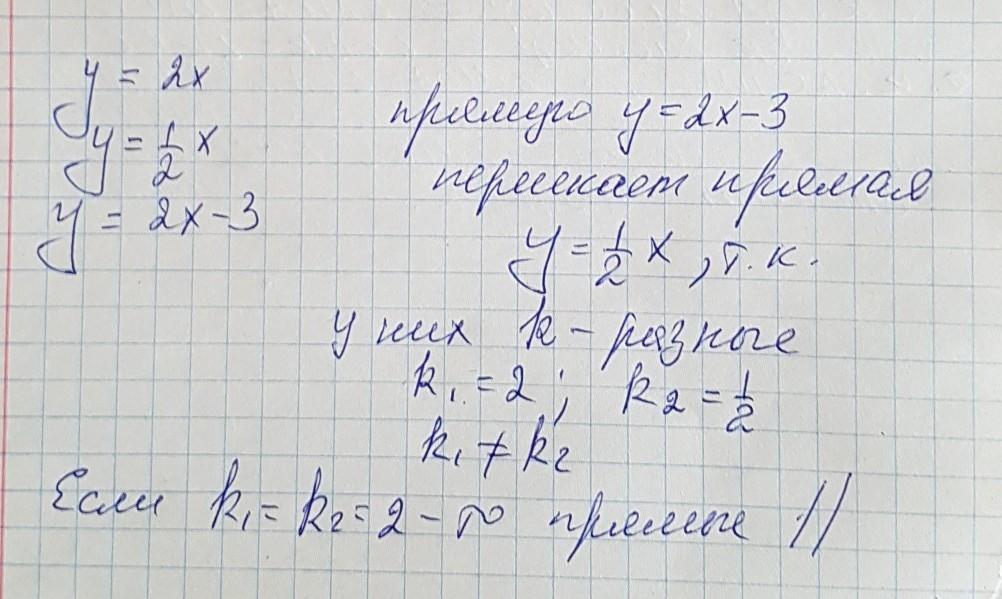 y = 2x
y = 1/2 x
y = 2x - 3
прямую y = 2x - 3
пересекает прямая
y = 1/2 x, т.к.
у них k - разные
k₁ = 2; k₂ = 1/2
k₁ ≠ k₂
Если k₁ = k₂ = 2 - то прямые //